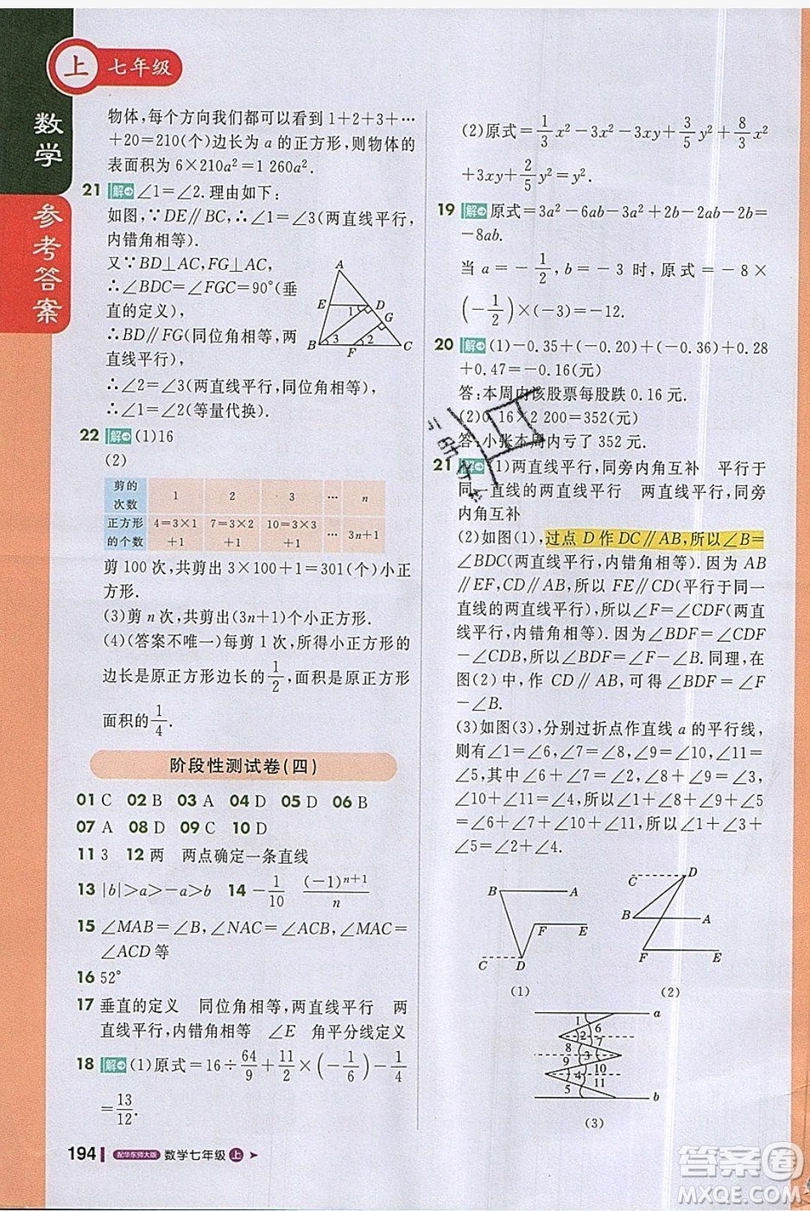 上 七年级
数学
参考答案
物体，每个方向我们都可以看到 1+2+3+…
+20=210(个)边长为 a 的正方形，则物体的
表面积为 6×210a²=1 260a².
21 解 ∠1=∠2. 理由如下：
如图，∵DE∥BC，∴∠1=∠3(两直线平行，
内错角相等).
又∵BD⊥AC，FG⊥AC，
∴∠BDC=∠FGC=90°(垂
直的定义)，
∴BD∥FG(同位角相等，两
直线平行)，
∴∠2=∠3(两直线平行，同位角相等)，
∴∠1=∠2(等量代换).
A
E
D
1
G
B
3
F
2
C
22 解 (1)16
(2)
剪的次数 1 2 3 … n
正方形的个数 4=3×1+1 7=3×2+1 10=3×3+1 … 3n+1
剪 100 次，共剪出 3×100+1=301 个小正
方形.
(3)剪 n 次，共剪出(3n+1)个小正方形.
(4)(答案不唯一)每剪 1 次，所得小正方形的
边长是原正方形边长的 1/2，面积是原正方形
面积的 1/4.
阶段性测试卷(四)
01 C 02 B 03 A 04 D 05 D 06 B
07 A 08 D 09 C 10 D
11 3 12 两 两点确定一条直线
13 |b|>a>-a>b 14 -1/10 (-1)ⁿ⁺¹/n
15 ∠MAB=∠B，∠NAC=∠ACB，∠BAC
16 52°
17 垂直的定义 同位角相等，两直线平行 两
直线平行，内错角相等 ∠E 角平分线定义
18 解 (1)原式=16÷64/9+11/2×(-1/6)-1/4
=13/12.
(2)原式=1/3x²-3x²-3xy+3/5y²+8/3x²
+3xy+2/5y²=y².
19 解 原式=3a²-6ab-3a²+2b-2ab-2b=
-8ab.
当 a=-1/2，b=-3 时，原式=-8×
(-1/2)×(-3)=-12.
20 解 (1)-0.35+(-0.20)+(-0.40)+0.28
+0.47=-0.16(元)
答：本周内该股票每股跌 0.16 元.
(2)0.16×2 200=352(元)
答：小张本周内亏了 352 元.
21 解 (1)两直线平行，同旁内角互补 平行于
同一直线的两直线平行 两直线平行，同旁
内角互补
(2)如图(1)，过点 D 作 DC∥AB，所以∠B=
∠BDC(两直线平行，内错角相等). 因为 AB
∥EF，CD∥AB，所以 FE∥CD(平行于同一
直线的两直线平行)，所以∠F=∠CDF(两直
线平行，内错角相等). 因为∠BDF=∠CDF
-∠CDB，所以∠BDF=∠F-∠B. 同理，在
图(2)中，也可得∠BDF=∠F
-∠B.
(3)如图(3)，分别过折点作直线 a 的平行线，
则有∠1=∠6，∠7=∠8，∠9=∠10，
∠5=∠11，所以∠1+∠8+∠9+∠5=∠6+∠7+
∠10+∠11，所以∠1+∠3+∠5=
∠2+∠4.
B
A
F
E
C
D
(1)
C
D
B
A
F
E
(2)
a
1
6
2
7
8
3
9
10
4
5
11
b
(3)
194 配华东师大版 数学七年级 上
答案圈
MXQE.COM